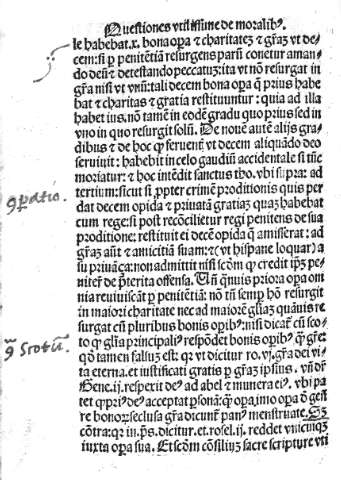 Questiones vtilissime de moralib⁹.
le habebat .x. bona oꝑa ⁊ charitateȝ ⁊ gr̃aȝ vt de-
cem: si ꝑ penitẽtiã resurgens parũ conetur aman-
do deũ ⁊ detestando peccatuȝ: ita vt nõ resurgat in
gr̃a nisi vt vnũ: tali decem bona oꝑa q̃ prius habe
bat ⁊ charitas ⁊ gratia restituuntur : quia ad illa
habet ius. nõ tamẽ in eodẽ gradu quo prius sed in
vno in quo resurgit solũ. De nouo autẽ alijs gra-
dibus ⁊ de hoc ꝙ feruenť vt decem aliquãdo deo
seruiuit : habebit in celo gaudiũ accidentale si tũc
moriatur: ⁊ hoc intẽdit sanctus tho. vbi supra: ad
tertium: sicut si ꝓpter crimẽ proditionis quis per
dat decem opida ⁊ priuatã gratiaȝ quaȝ habebat
cum rege: si post recõcilietur regi penitens de sua
proditione: restituit ei decẽ opida q̃ amiserat : ad
gr̃aȝ aũt ⁊ amicitiã suam: ⁊ (vt hispane loquar) a
su priuãça: non admittit nisi scďm ꝙ credit ip̃ȝ pe-
niteř de p̃terita offensa. Uñ q̃uis priora oꝑa om
nia reuiuiscãt ꝑ penitentiã: nõ tñ semꝑ hõ resurgit
in maiori charitate nec ad maiorẽ gl̃iaȝ quãuis re
surgat cũ pluribus bonis oꝑib⁹: nisi dicať cũ sco-
to ꝙ gl̃ia principalis respõdet bonis oꝑib⁹ q̃ gr̃e:
qđ tamen falsuȝ est: qꝛ vt dicitur ro. vj. gr̃a dei vi-
ta eterna. et iustificati gratis ꝑ gr̃aȝ ipsius. vñ dr̃
Gene. ij. respexit de⁹ ad abel ⁊ munera ei⁹. vbi pa
tet ꝙ pri⁹ de⁹ acceptat ꝑsonã: ꝙ̃ oꝑa, imo oꝑa õ gen̄e
re bonoꝝ seclusa gr̃a dicunť pan̄⁹ menstruate. Sȝ
cõtra: qꝛ in ps. dicitur. et rosel. ij. reddet vnicuiqȝ
iuxta oꝑa sua. Et scďm cõsiliuȝ sacre scripture vti
ɔ̃ Scotũ.